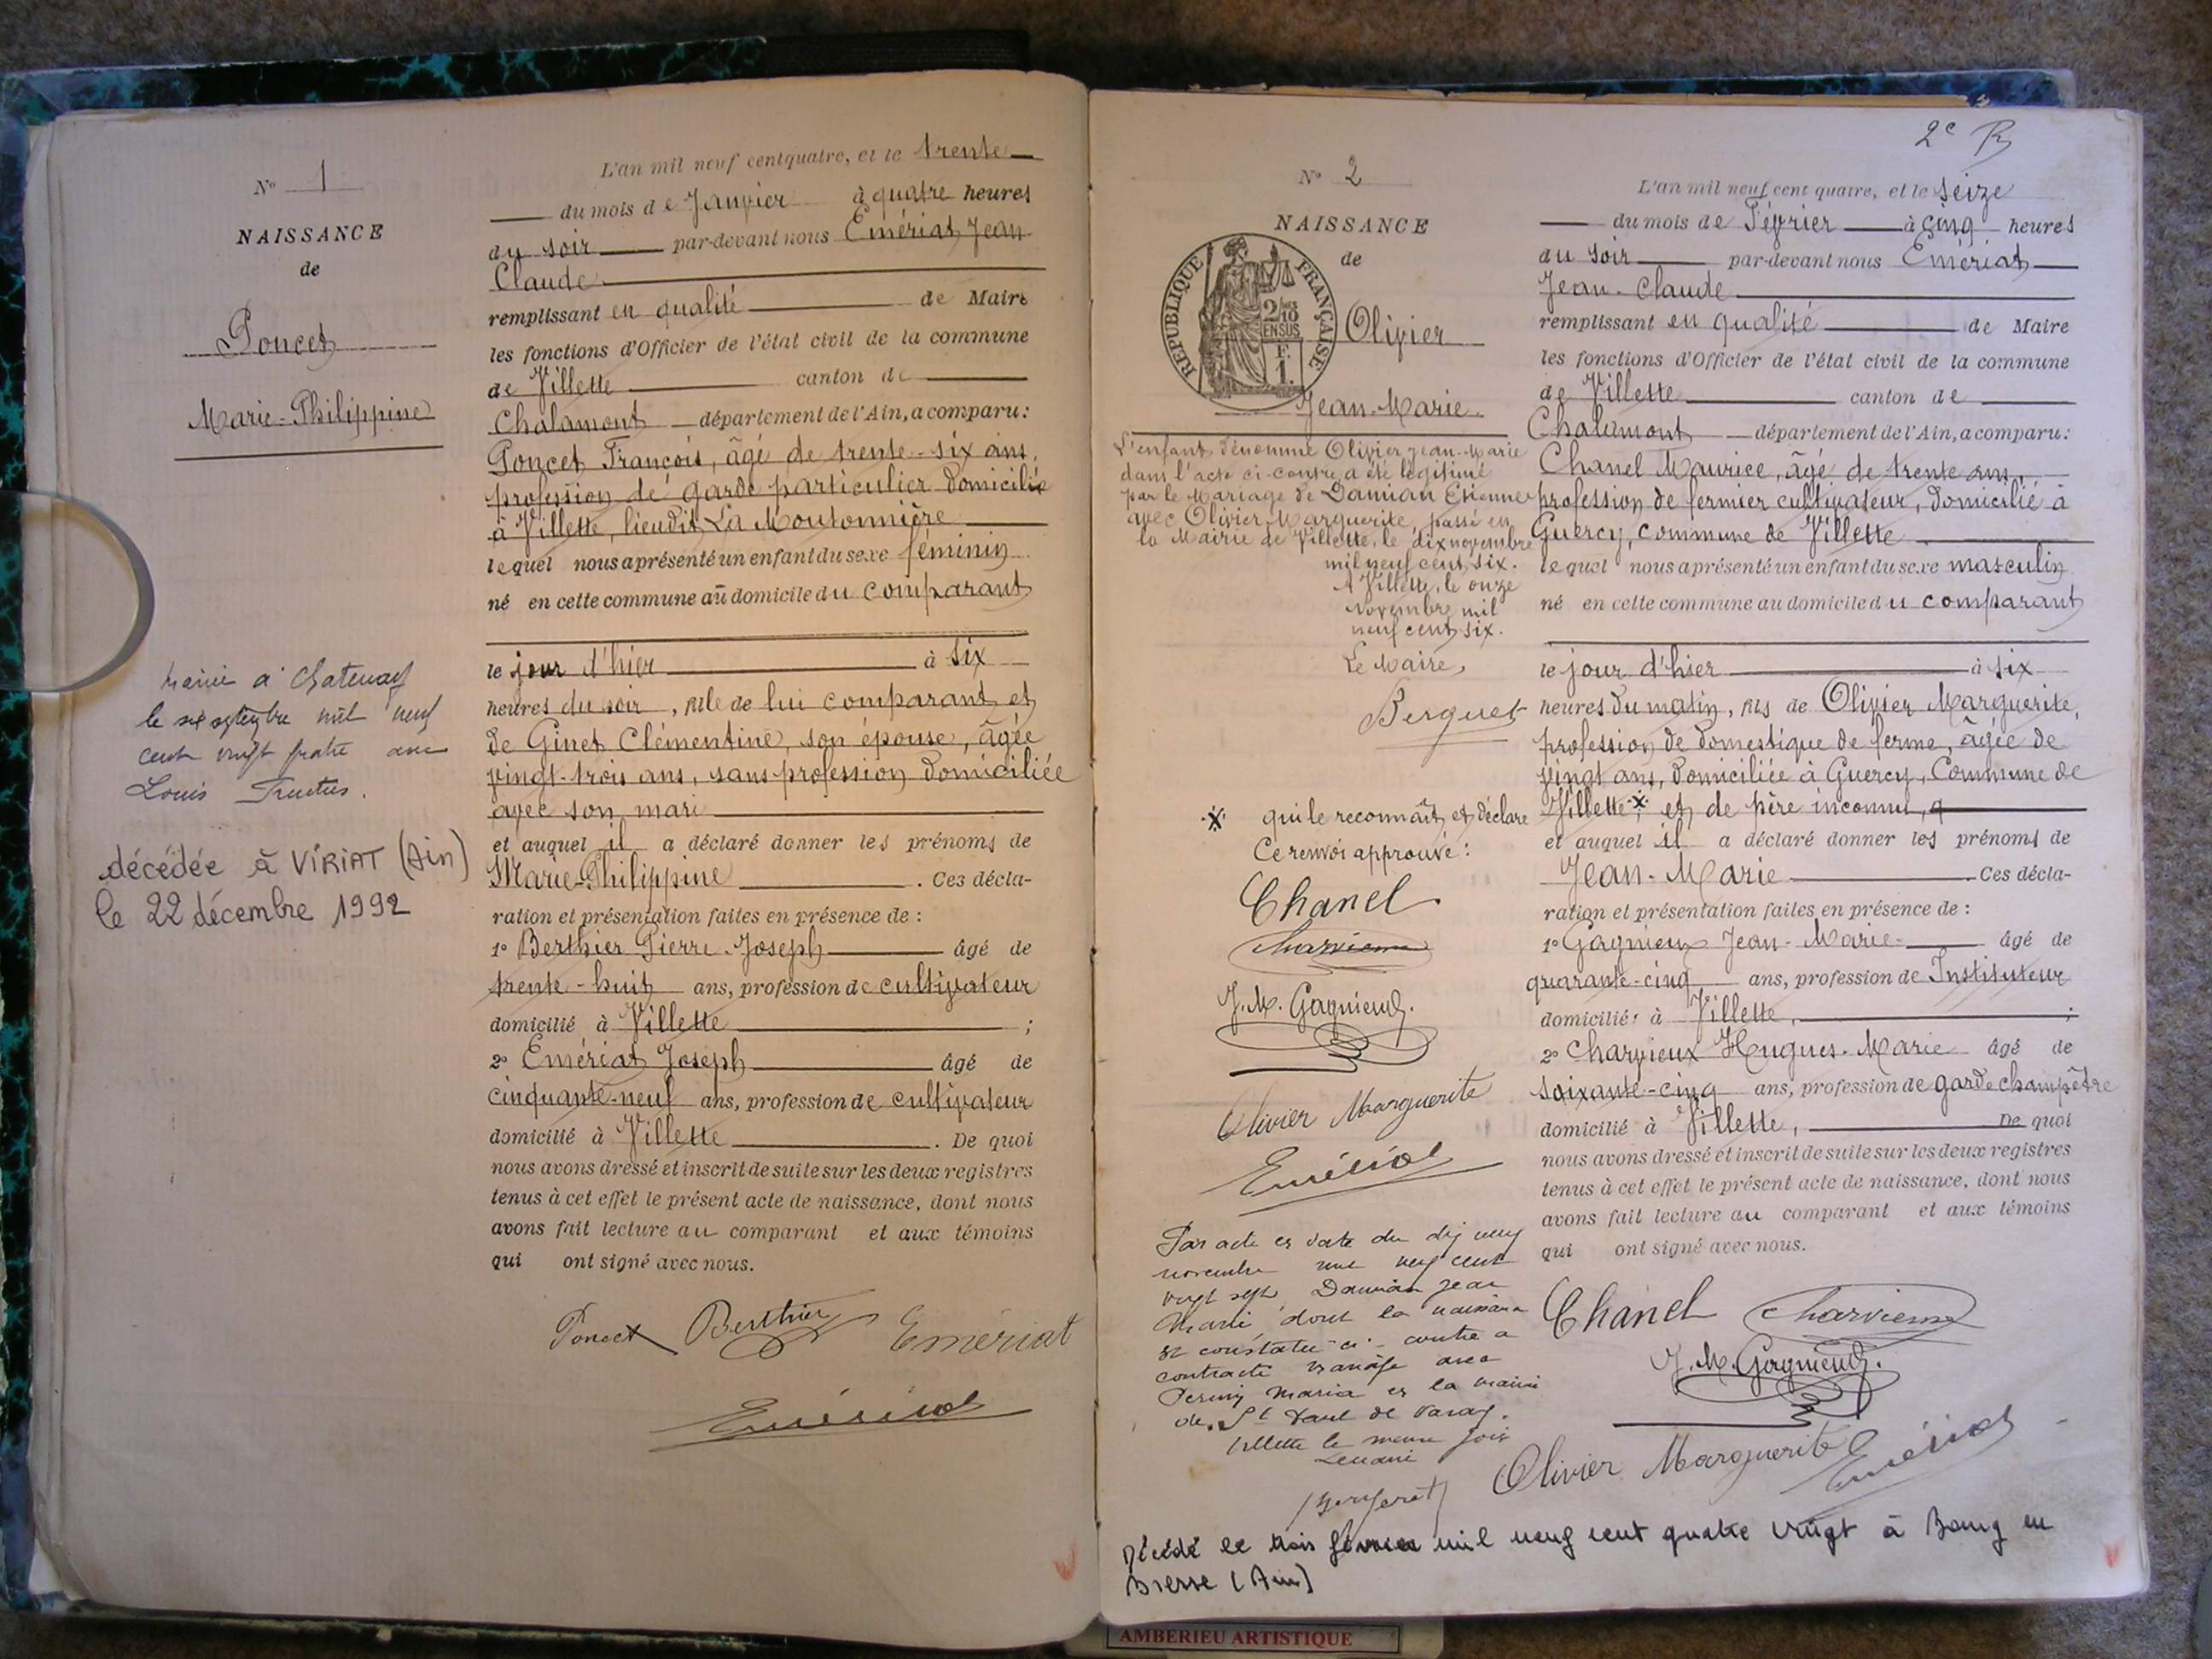 N° 1
NAISSANCE
de
Poncet
Marie-Philippine
Mariée à Chatenay
le six septembre mil neuf
cent vingt quatre avec
Louis
décédée à VIRIAT (Ain)
le 22 décembre 1992
L'an mil neuf cent quatre, et le trente
du mois de Janvier à quatre heures
du soir par-devant nous Emériat Jean
Claude
remplissant en qualité de Maire
les fonctions d'Officier de l'état civil de la commune
de Villette canton de
Chalamont département de l'Ain, a comparu:
Poncet François, âgé de trente-six ans,
profession de garde particulier domicilié
à Villette, lieudit La Moutonnière
lequel nous a présenté un enfant du sexe féminin
né en cette commune au domicile du comparant
le jour d'hier à six
heures du soir, fille de lui comparant et
de Ginet Clémentine, son épouse, âgée
vingt-trois ans, sans profession domiciliée
avec son mari
et auquel il a déclaré donner les prénoms de
Marie-Philippine. Ces décla-
ration et présentation faites en présence de :
1° Berthier Pierre-Joseph âgé de
trente-huit ans, profession de cultivateur
domicilié à Villette ;
2° Emériat Joseph âgé de
cinquante-neuf ans, profession de cultivateur
domicilié à Villette. De quoi
nous avons dressé et inscrit de suite sur les deux registres
tenus à cet effet le présent acte de naissance, dont nous
avons fait lecture au comparant et aux témoins
qui ont signé avec nous.
Poncet Berthier Emériat
Emériat
2e
N° 2
NAISSANCE
de
REPUBLIQUE FRANÇAISE
2/10
EN SUS
F.
1.
Olivier
Jean-Marie.
L'enfant dénommé Olivier Jean-Marie
dans l'acte ci-contre, a été légitimé
par le Mariage de Damian Etienne
avec Olivier Marguerite, passé en
la Mairie de Villette, le dix novembre
mil neuf cent six.
A Villette, le onze
Novembre mil
neuf cent six.
Le Maire,
※ qui le reconnaît et déclare
Ce renvoi approuvé :
Chanel
Charvieux
J. M. Gagnieux.
Olivier Marguerite
Emériat
Par acte en date du dix neuf
novembre mil neuf cent
vingt sept Damian Jean
Marie dont la naissance
est constatée ci-contre a
contracté mariage avec
Maria en la mairie
de St Paul de Varax.
Villette le même jour
Le Maire
Décédé le trois février mil neuf cent quatre vingt à Bourg en
Bresse (Ain)
L'an mil neuf cent quatre, et le seize
du mois de Février à cinq heures
du soir par-devant nous Emériat
Jean-Claude
remplissant en qualité de Maire
les fonctions d'Officier de l'état civil de la commune
de Villette canton de
Chalamont département de l'Ain, a comparu:
Chanel Maurice, âgé de trente ans,
profession de fermier cultivateur, domicilié à
Guercy, commune de Villette
lequel nous a présenté un enfant du sexe masculin
né en cette commune au domicile du comparant
le jour d'hier à six
heures du matin, fils de Olivier Marguerite,
profession de domestique de ferme, âgée de
vingt ans, domiciliée à Guercy, Commune de
Villette ※, et de père inconnu,
et auquel il a déclaré donner les prénoms de
Jean-Marie. Ces décla-
ration et présentation faites en présence de :
1° Gagnieux Jean-Marie âgé de
quarante-cinq ans, profession de Instituteur
domicilié à Villette, ;
2° Charvieux Hugues-Marie âgé de
soixante-cinq ans, profession de garde champêtre
domicilié à Villette, De quoi
nous avons dressé et inscrit de suite sur les deux registres
tenus à cet effet le présent acte de naissance, dont nous
avons fait lecture au comparant et aux témoins
qui ont signé avec nous.
Chanel Charvieux
J. M. Gagnieux.
Olivier Marguerite Emériat
AMBERIEU ARTISTIQUE